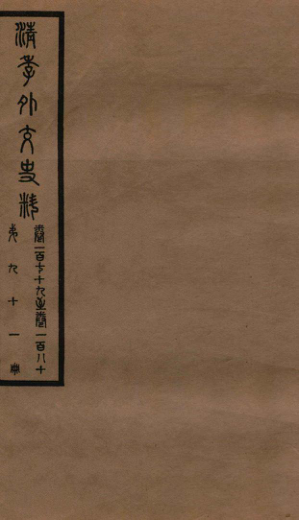 清季外交史料
卷一百七十九至卷一百八十
第九十一冊